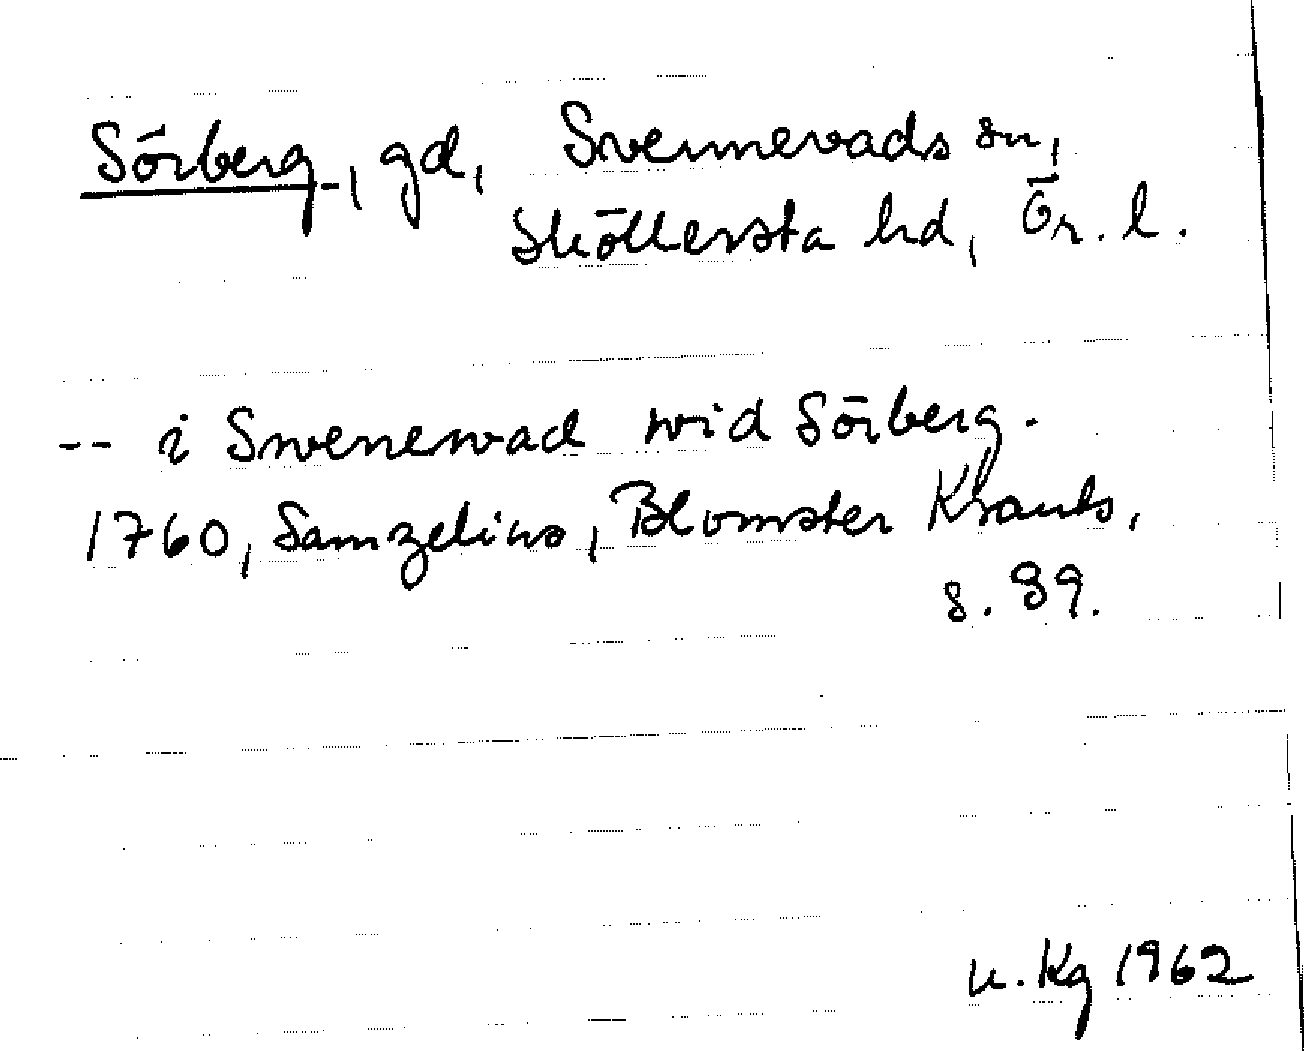 Sörberg, gd, Svennevads sn,
Sköllersta hd, Ör. l.
-- i Swenewad wid Sörberg.
1760, Samzelius, Blomster Krants,
s. 39.
u. Kg 1962